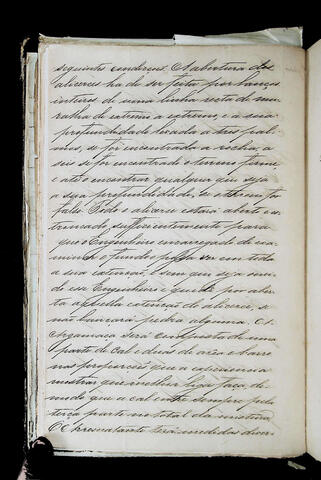 seguintes condições. A abertura dos
alicerces ha de ser feita por lanços
inteiros de uma linha recta de mu-
ralha de extremo a extremo, e a sua
profundidade levada a tres pal-
mos, se for encontrada a rocha, a
seis se for encontrado o terreno firme
e até o encontrar qualquer que seja
a sua profundidade, se o terreno for
falso. Todo o alicerce estará aberto e
sufficientemente para
que o Engenheiro encarregado de exa-
minar o fundo possa ver em toda
a sua extenção. E sem que seja ouvi-
do esse Engenheiro e que dê por aber-
ta aquella extenção de alicerce, se
não lançará pedra alguma. A
Argamaça será composta de uma
parte de cal e duas de area e barro
nas proporções que a experiencia
mostrar que melhor liga faça, de
modo que a cal entre sempre pela
terça parte no total da mistura.
O Arrematante terá medidas diver-